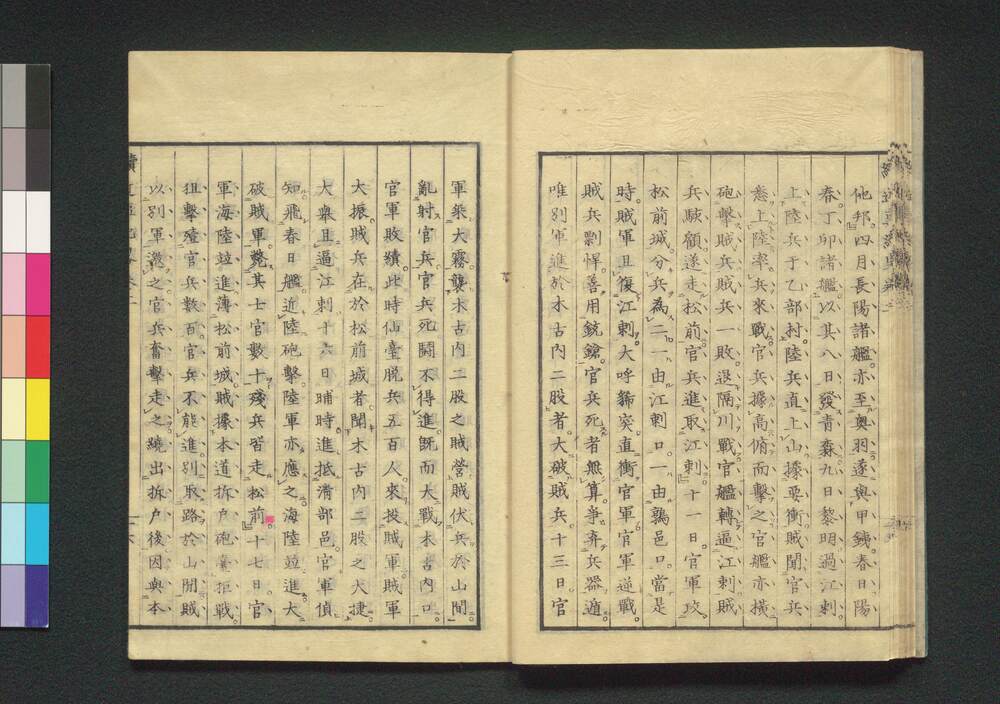 他邦。四月長陽諸艦。亦至奥羽。遂與甲鐵。春日陽
春。丁卯諸艦。以其八日發青森。九日黎明過江刺。
上陸兵于乙部村。陸兵直上山據要衝。賊聞官兵
悉上陸。率兵來戰。官兵據高俯而擊之。官艦亦横
砲擊賊兵。賊兵一敗。退隔川戰。官艦轉逼江刺。賊
兵駭顧遂走松前。官兵進取江刺。十一日官軍攻
松前城。分兵為二。一由江刺口。一由鶉邑口。當是
時。賊軍且復江刺。大呼豨突。直衝官軍。官軍逆戰。
賊兵剽悍。善用銃鎗。官兵死者無算。爭弃兵器遁。
唯別軍進於木古内二股者。大破賊兵。十三日官
軍乘大霧。襲木古内二股之賊營。賊伏兵於山間
亂射官兵。官兵死鬪不得進。既而大戰木古内口。
官軍敗績。此時仙臺脱兵五百人來投賊軍。賊軍
大振。賊兵在於松前城者。聞木古内二股之大捷。
大舉且逼江刺。十六日晡時。進抵清部邑。官軍偵
知。飛春日艦近陸砲擊。陸軍亦應之。海陸竝進大
破賊軍。斃其士官數十。殘兵皆走松前。十七日。官
軍海陸竝進。薄松前城。賊據本道折戸砲臺拒戰。
狙擊殪官兵數百。官兵不能進。別取路於山間。賊
以別軍邀之。官兵奮擊走之。繞出折戸後。因與本